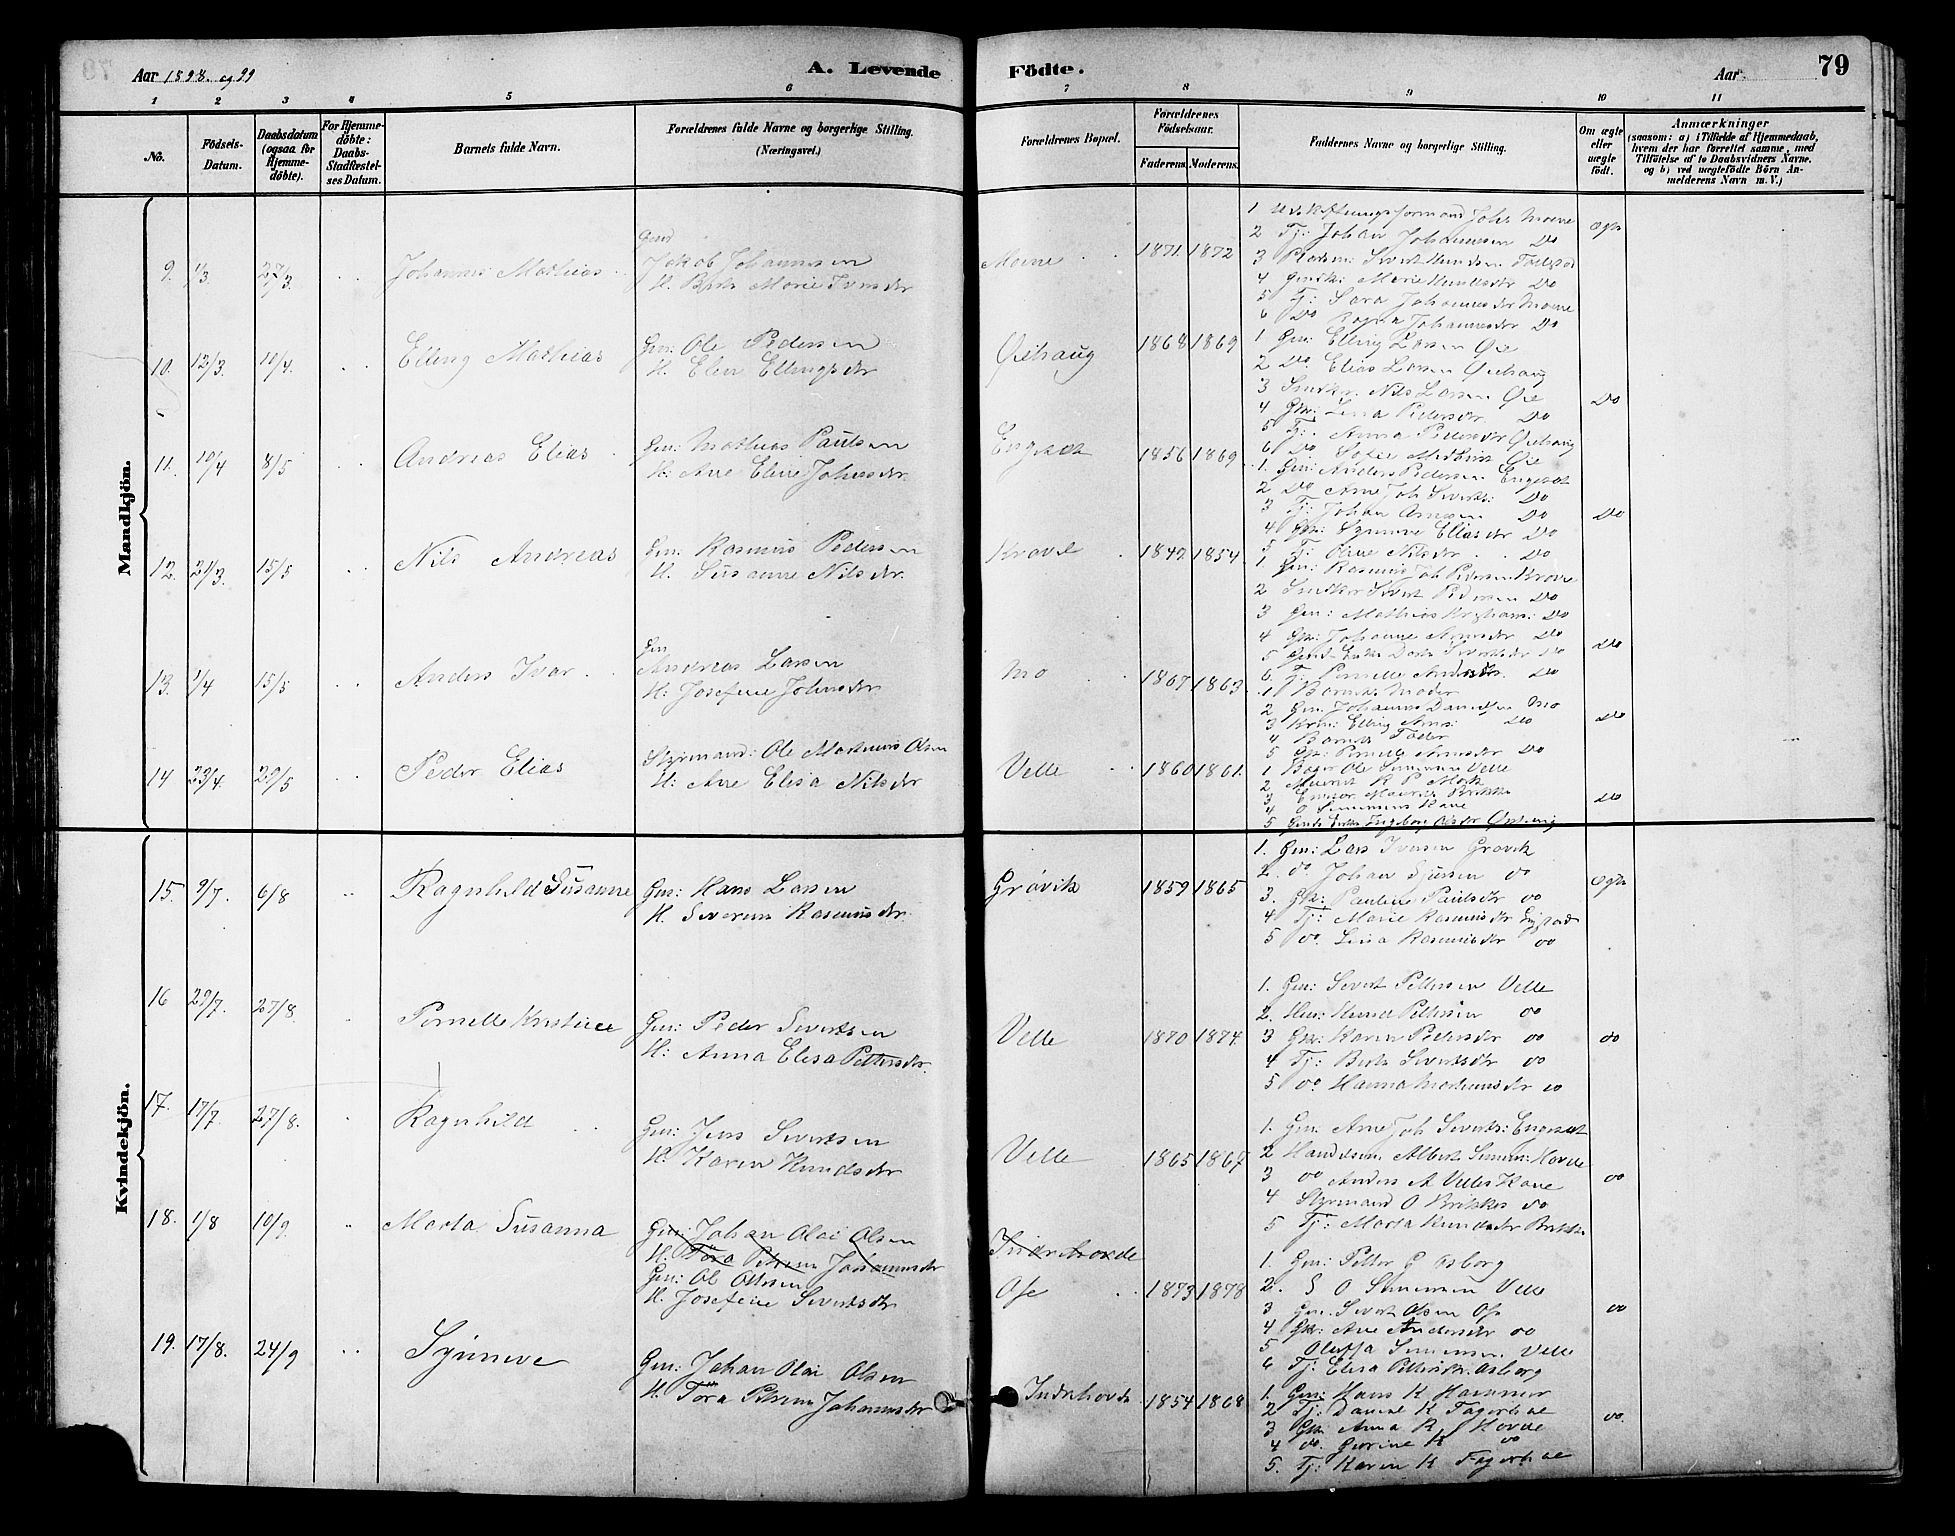 Aar 1898. og 99
A. Levende
Födte.
Aar
79
1 2 3 4 5 6 7 8 9 10 11
No.
Födsels-Datum.
Daabsdatum (ogsaa for Hjemme-döbte).
For Hjemme-döbte: Daabs-Stadfæstel-ses Datum.
Barnets fulde Navn.
Forældrenes fulde Navne og borgerlige Stilling. (Næringsvei.)
Forældrenes Bopæl.
Forældrenes Födselsaar.
Faderens. Moderens.
Faddernes Navne og borgerlige Stilling.
Om ægte eller uægte födt.
Anmærkninger
(saasom: a) i Tilfælde af Hjemmedaab,
hvem der har forrettet samme, med
Tilföielse af to Daabsvidners Navne.
og b) ved uægtefödte Börn An-
melderens Navn m. V.)
Mandkjön.
9. 1/3 27/3 Johannes Mathias
Gmd
Jakob Johannssen
H. Berte Marie Iversdr
Moene 1871. 1872
2 Tj: Johan Johannssen Do
4 Marie Knudsdr Do
5 Tj: Sara Johannesdr Moene
6 Do Johannesdr Do
Ægte
10. 12/3. 10/4. Elling Mathias
Gm: Ole Pedersen
H. Eline Ellingsdr
Øiehaug 1868 1869
1 Gm: Elling Larsen Øie
2 Do Elias Larsen Øiehaug
3 Nils Larsen Øie
4 Gk: Pedersdr Do
5 Tj. Anna Pedersdr Øiehaug
Do
11. 10/4 8/5 Andreas Elias
Gm: Mathias Paulsen
H. Ane Eline Johnsdr.
Engeset 1856 1869
1. Gm: Anders Pedersen Engeset
2 Do Arne Joh Sivertse: Do
3 Tj: Johan Arnesen Do
4 Gk: Synnøve Eliasdr Do
5 Tj: Oline Nilsdr Do
Do
12. 21/3. 15/5 Nils Andreas
Gm: Rasmus Pedersen
H. Susanne Nilsdr.
Krovel 1847. 1854.
1 Gm: Rasmus Joh Pedersen Krovel
2 Sivert Pedersen Do
3 Gm: Mathias Do
4 Gk: Johanne Arnesdr Do
5 Sivertsdr Do
6. Tj: Pernille Andersdr. Do
Do
13. 1/4 15/5 Anders Ivar
Gm
Andreas Larsen
H: Josefine Johnsdr
Mo 1867 1863
1 Barnets Moder
2 Gm: Johannes Danielsen Mo
3 Elling Do
4 Barnets Fader
5 Gk: Pernille Arnesdr Do
Do
14 23/4. 29/5 Peder Elias
Styrmand: Ole Martinus Olsen
H: Ane Elisa Nilsdr
Velle 1860 1861.
1 Ole Simensen Velle
5 Ingeborg Olsdr
Do
Kvindekjön.
15. 9/7. 6/8 Ragnhild Susanne
Gm: Hans Larsen
H. Severine Rasmusdr.
Grøvik 1859 1865
1. Gm: Lars Iversen Grøvik
2. do Johan Sjursen do
3. Gk: Pauline Paulsdr do
4 Tj: Marie Rasmusdr
5 do. Lisa Rasmusdr do
Ægte
16 29/7. 27/8. Pernille Kristine
Gm: Peder Sivertsen
H: Anna Elisa Pettersdr.
Velle 1870 1874.
1. Gm: Sivert Pettersen Velle
2. Knud Pettersen do
3 Gk: Karen Pettersdr do
4 Tj: Berte Sivertsdr do
5 do Hanna Martinusdr do
do
17. 17/7. 27/8. Ragnhild
Gm: Jens Sivertsen
H. Karen Knudsdr
Velle 1865 1867
1. Gm: Arne Joh Sivertse: Engeset
2 Handelsm Albert Simens: Hovde
3 do Anders A Velle
4 Styrmand O Brekke do
5 Tj: Marta Knudsdr Brekke
do
18. 1/8 10/9. Marta Susanna
Gm: Johan Olai Olsen
H. Tora Petrine Johannesdr
Gm: Ole Ottesen
H. Josefine Sivertsdr
Indrehovde
Ose 1873 1878
1. Gm: Petter E Aasborg
2. S O Simensen Velle
3 Gm. Sivert Olsen Ose
4 Gk: Ane Andersdr do
5 Oluffa Simensen. Velle
6 Tj: Elisa Pettersdr. Aasborg
do
19. 17/8. 24/9 Synneve
Gm: Johan Olai Olsen
H. Tora Petrine Johannesdr
Indrehovde 1854 1868
1. Gm: Hans K Hammer
2 Tj: Daniel K Fagerhoe
3 Gk Anna R Hovde
4 do. Gurine K do
5. Tj: Karen K Fagerhoe
do.